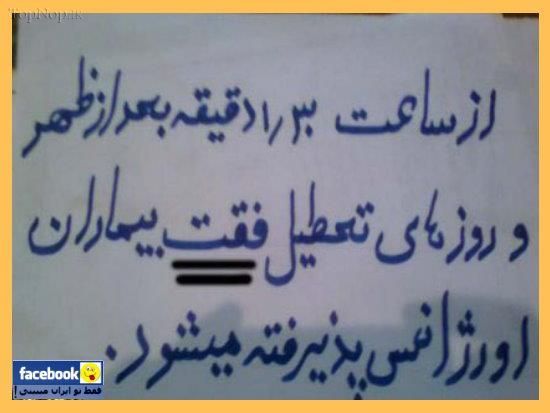 TopNop.ir
از ساعت ۱٫۳۰ دقیقه بعد از ظهر
و روزهای تحطیل فقت بیماران
اورژانس پذیرفته میشود.
facebook
فقط تو ایران میبینی!